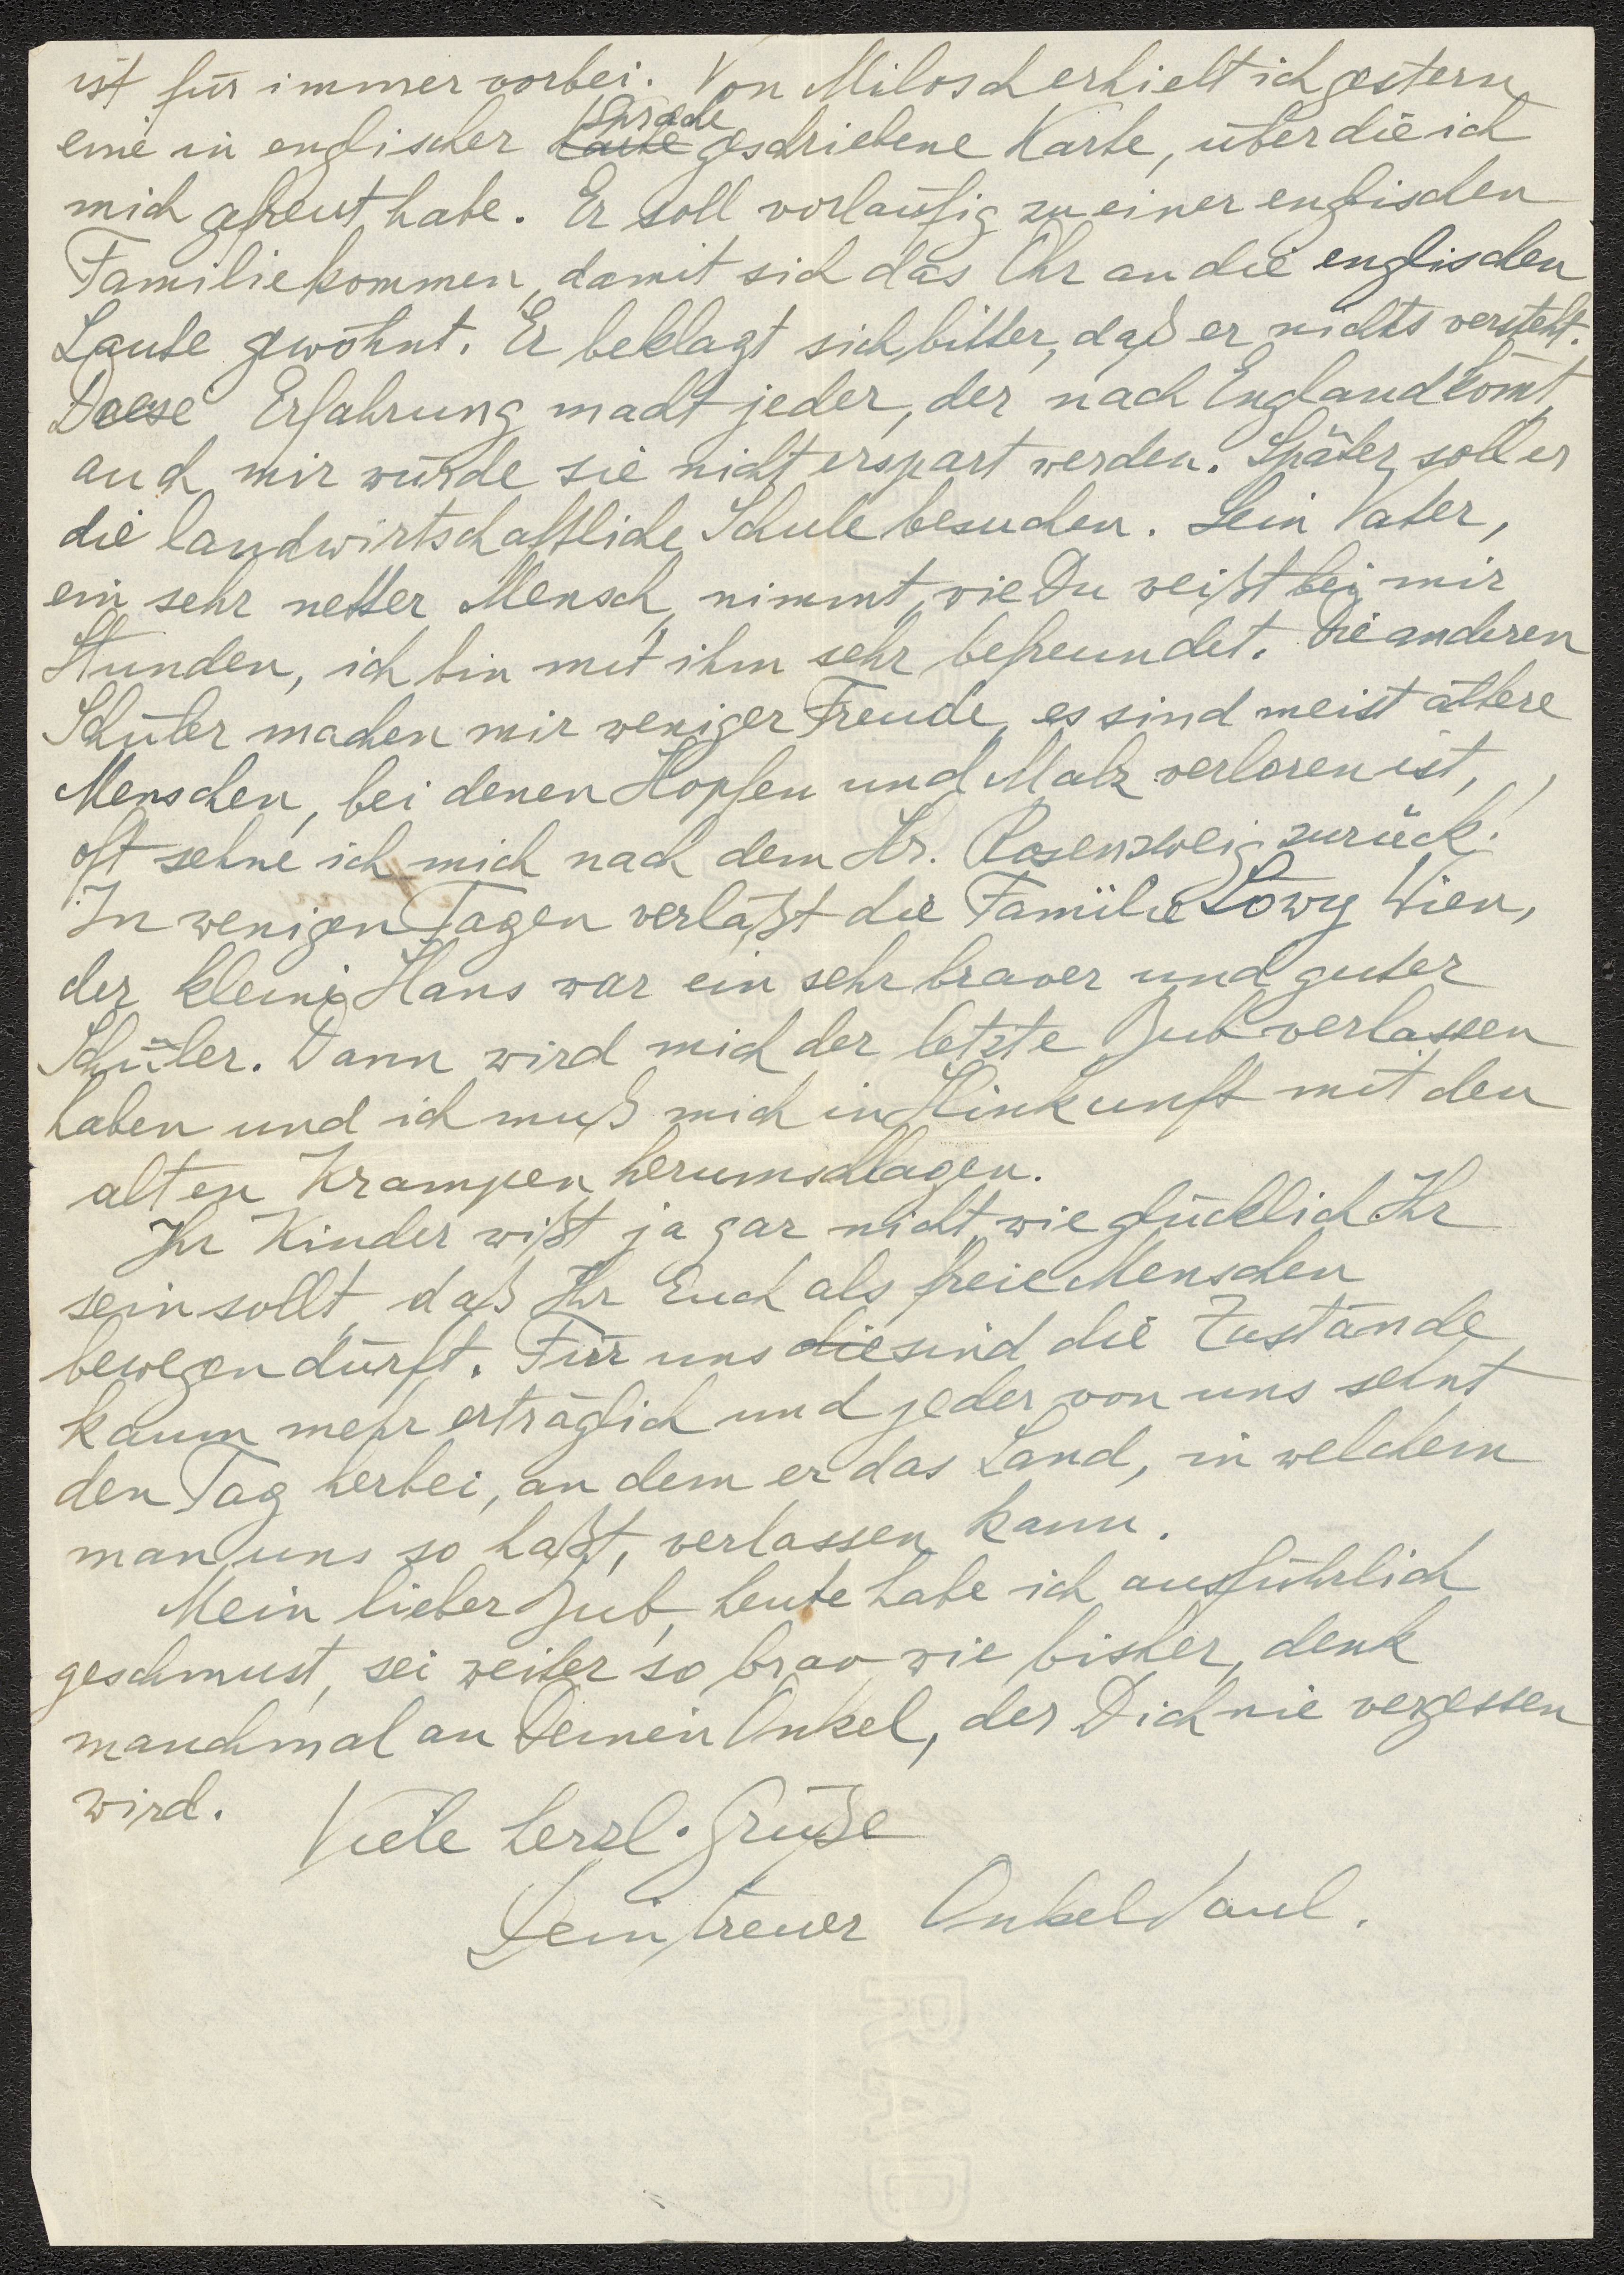 ist für immer vorbei. Von Milosch erhielt ich gestern
eine in englischer Sprache geschriebene Karte, über die ich
mich gefreut habe. Er soll vorläufig zu einer englischen
Familie kommen, damit sich das Ohr an die englischen
Laute gewöhnt. Er beklagt sich bitter, daß er nichts versteht.
Diese Erfahrung macht jeder, der nach England kom̄t,
auch mir würde sie nicht erspart werden. Später soll er
die landwirtschaftliche Schule besuchen. Sein Vater,
ein sehr netter Mensch, nimmt, wie Du weißt bei mir
Stunden, ich bin mit ihm sehr befreundet. Die anderen
Schüler machen mir weniger Freude, es sind meist ältere
Menschen, bei denen Hopfen und Malz verloren ist,
oft sehne ich mich nach dem Hr. Rosenzweig zurück!
In wenigen Tagen verläßt die Familie Löwy Wien,
der kleine Hans war ein sehr braver und guter
Schüler. Dann wird mich der letzte Bub verlassen
haben und ich muß mich in Hinkunft mit den
alten Krampen herumschlagen.
Ihr Kinder wißt ja gar nicht, wie glücklich Ihr
sein sollt, daß Ihr Euch als freie Menschen
bewegen dürft. Für uns die sind die Zustände
kaum mehr erträglich und jeder von uns sehnt
den Tag herbei, an dem er das Land, in welchem
man uns so haßt, verlassen kann.
Mein lieber Bub, heute habe ich ausführlich
geschmust, sei weiter so brav wie bisher, denk
manchmal an Deinen Onkel, der Dich nie vergessen
wird.
Viele herzl. Grüße
Dein treuer Onkel Paul.
RAD